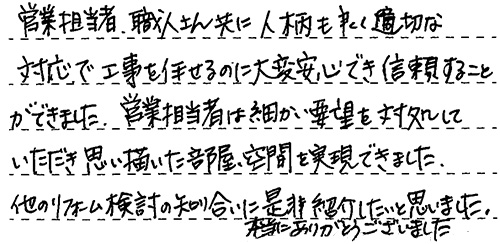 営業担当者、職人さん共に人柄も良く適切な
対応で工事を任せるのに大変安心でき信頼すること
ができました。営業担当者は細かい要望を対処して
いただき思い描いた部屋、空間を実現できました。
他のリフォーム検討の知り合いに是非紹介したいと思いました。
本当にありがとうございました